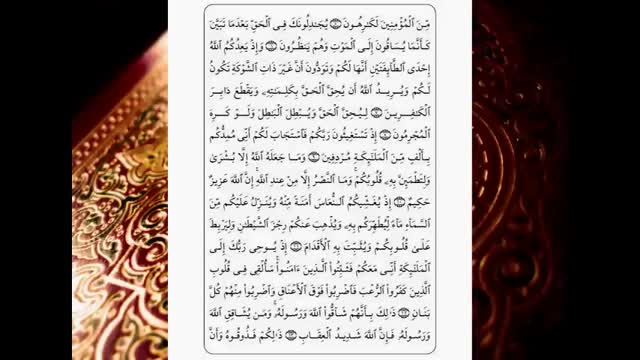 مِّنَ ٱلْمُؤْمِنِينَ لَكَٰرِهُونَ ۝ يُجَٰدِلُونَكَ فِى ٱلْحَقِّ بَعْدَمَا تَبَيَّنَ
كَأَنَّمَا يُسَاقُونَ إِلَى ٱلْمَوْتِ وَهُمْ يَنظُرُونَ ۝ وَإِذْ يَعِدُكُمُ ٱللَّهُ
إِحْدَى ٱلطَّآئِفَتَيْنِ أَنَّهَا لَكُمْ وَتَوَدُّونَ أَنَّ غَيْرَ ذَاتِ ٱلشَّوْكَةِ تَكُونُ
لَكُمْ وَيُرِيدُ ٱللَّهُ أَن يُحِقَّ ٱلْحَقَّ بِكَلِمَٰتِهِۦ وَيَقْطَعَ دَابِرَ
ٱلْكَٰفِرِينَ ۝ لِيُحِقَّ ٱلْحَقَّ وَيُبْطِلَ ٱلْبَٰطِلَ وَلَوْ كَرِهَ
ٱلْمُجْرِمُونَ ۝ إِذْ تَسْتَغِيثُونَ رَبَّكُمْ فَٱسْتَجَابَ لَكُمْ أَنِّى مُمِدُّكُم
بِأَلْفٍ مِّنَ ٱلْمَلَٰٓئِكَةِ مُرْدِفِينَ ۝ وَمَا جَعَلَهُ ٱللَّهُ إِلَّا بُشْرَىٰ
وَلِتَطْمَئِنَّ بِهِۦ قُلُوبُكُمْ ۚ وَمَا ٱلنَّصْرُ إِلَّا مِنْ عِندِ ٱللَّهِ ۚ إِنَّ ٱللَّهَ عَزِيزٌ
حَكِيمٌ ۝ إِذْ يُغَشِّيكُمُ ٱلنُّعَاسَ أَمَنَةً مِّنْهُ وَيُنَزِّلُ عَلَيْكُم مِّنَ
ٱلسَّمَآءِ مَآءً لِّيُطَهِّرَكُم بِهِۦ وَيُذْهِبَ عَنكُمْ رِجْزَ ٱلشَّيْطَٰنِ وَلِيَرْبِطَ
عَلَىٰ قُلُوبِكُمْ وَيُثَبِّتَ بِهِ ٱلْأَقْدَامَ ۝ إِذْ يُوحِى رَبُّكَ إِلَى
ٱلْمَلَٰٓئِكَةِ أَنِّى مَعَكُمْ فَثَبِّتُوا۟ ٱلَّذِينَ ءَامَنُوا۟ ۚ سَأُلْقِى فِى قُلُوبِ
ٱلَّذِينَ كَفَرُوا۟ ٱلرُّعْبَ فَٱضْرِبُوا۟ فَوْقَ ٱلْأَعْنَاقِ وَٱضْرِبُوا۟ مِنْهُمْ كُلَّ
بَنَانٍ ۝ ذَٰلِكَ بِأَنَّهُمْ شَآقُّوا۟ ٱللَّهَ وَرَسُولَهُۥ ۚ وَمَن يُشَاقِقِ ٱللَّهَ
وَرَسُولَهُۥ فَإِنَّ ٱللَّهَ شَدِيدُ ٱلْعِقَابِ ۝ ذَٰلِكُمْ فَذُوقُوهُ وَأَنَّ